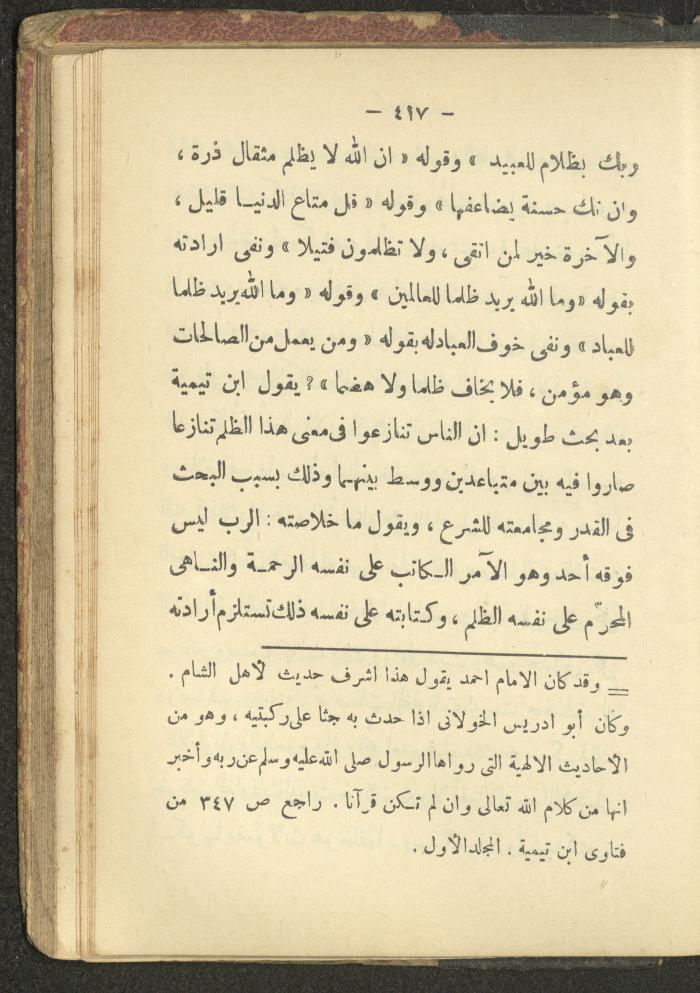 — ٤١٧ —
ربك بظلام للعبيد » وقوله « ان الله لا يظلم مثقال ذرة ،
وان تك حسنة يضاعفها » وقوله « قل متاع الدنيـا قليل ،
والآخرة خير لمن اتقى ، ولا تظلمون فتيلا » ونفى ارادته
بقوله « وما الله يريد ظلما للعالمين » وقوله « وما الله يريد ظلما
للعباد » ونفى خوف العباد له بقوله « ومن يعمل من الصالحات
وهو مؤمن ، فلا يخاف ظلما ولا هضما » ؟ يقول ابن تيمية
بعد بحث طويل : ان الناس تنازعوا فى معنى هذا الظلم تنازعا
صاروا فيه بين متباعدين ووسط بينهما وذلك بسبب البحث
فى القدر ومجامعته للشرع ، ويقول ما خلاصته : الرب ليس
فوقه أحد وهو الآمر الـكاتب على نفسه الرحمـة والنـاهى
المحرّم على نفسه الظلم ، وكـتابته على نفسه ذلك تستلزم أرادته
= وقد كان الامام احمد يقول هذا اشرف حديث لأهل الشام .
وكان أبو ادريس الخولانى اذا حدث به جثا على ركبتيه ، وهو من
الأحاديث الالهية التى رواها الرسول صلى الله عليه وسلم عن ربه وأخبر
انها من كلام الله تعالى وان لم تـكن قرآنا . راجع ص ٣٤٧ من
فتاوى ابن تيمية . المجلد الأول .